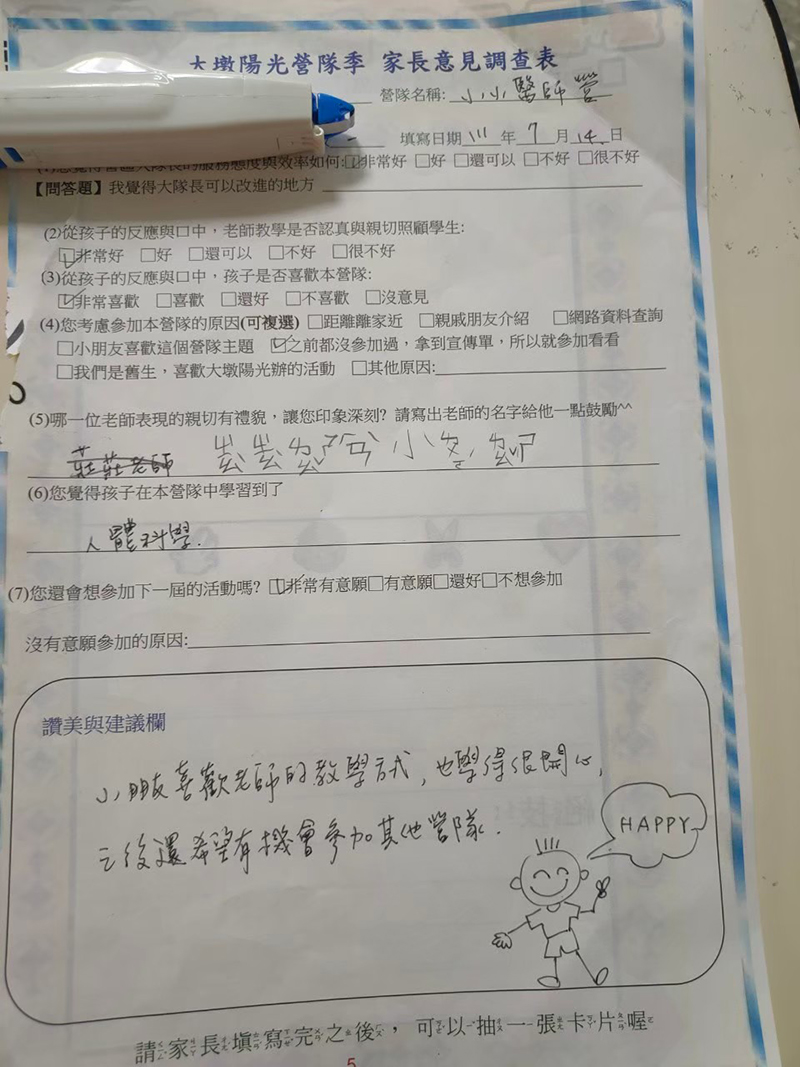 大墩陽光營隊季 家長意見調查表
營隊名稱: 小小醫師營
填寫日期 111 年 7 月 14 日
(1)您覺得營隊大隊長的服務態度與效率如何:☑非常好 □好 □還可以 □不好 □很不好
【問答題】我覺得大隊長可以改進的地方
(2)從孩子的反應與口中，老師教學是否認真與親切照顧學生:
☑非常好 □好 □還可以 □不好 □很不好
(3)從孩子的反應與口中，孩子是否喜歡本營隊:
☑非常喜歡 □喜歡 □還好 □不喜歡 □沒意見
(4)您考慮參加本營隊的原因(可複選) □距離離家近 □親戚朋友介紹 □網路資料查詢
□小朋友喜歡這個營隊主題 ☑之前都沒參加過，拿到宣傳單，所以就參加看看
□我們是舊生，喜歡大墩陽光辦的活動 □其他原因:
(5)哪一位老師表現的親切有禮貌，讓您印象深刻? 請寫出老師的名字給他一點鼓勵^^
莊莊老師
(6)您覺得孩子在本營隊中學習到了
人體科學.
(7)您還會想參加下一屆的活動嗎? ☑非常有意願□有意願□還好□不想參加
沒有意願參加的原因:
讚美與建議欄
小朋友喜歡老師的教學方式，也學得很開心，
之後還希望有機會參加其他營隊.
HAPPY
請家長填寫完之後，可以抽一張卡片喔
5